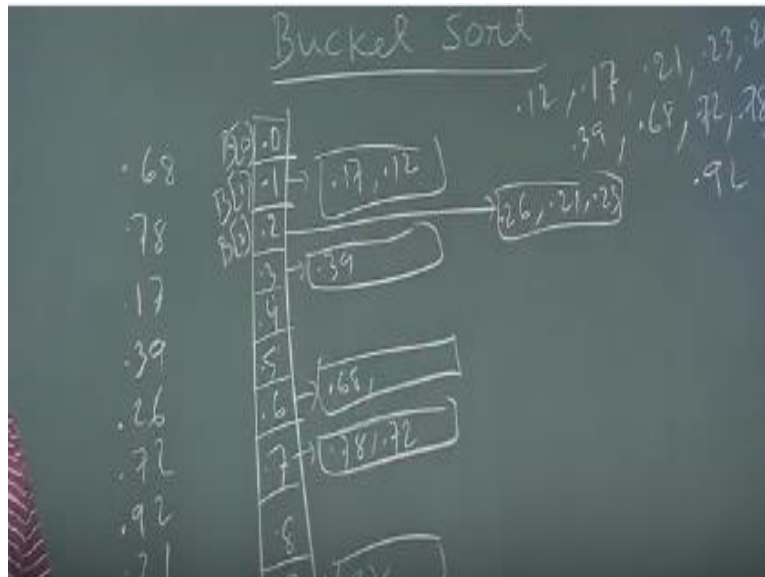 Bucket Sort
.12, .17, .21, .23, .2
.39, .68, .72, .78
.92
.68
.78
.17
.39
.26
.72
.92
.21
B[0] .0
B[1] .1 → .17, .12
B[2] .2 → .26, .21, .23
.3 → .39
.4
.5
.6 → .68,
.7 → .78, .72
.8